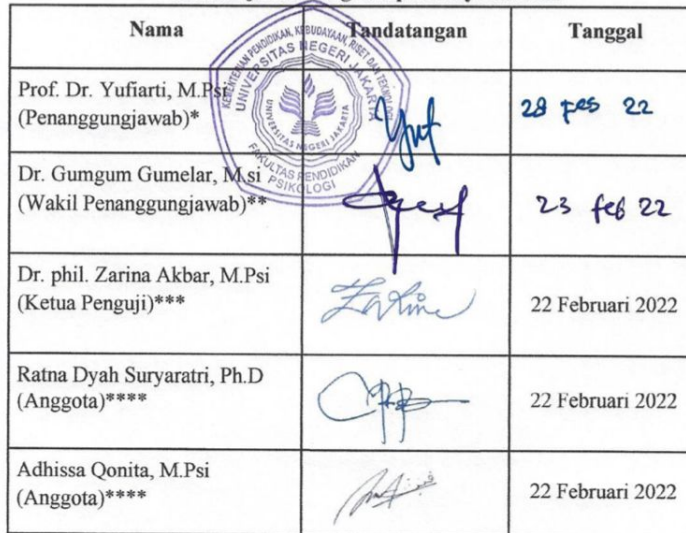 Nama Tandatangan Tanggal
Prof. Dr. Yufiarti, M.Psi
(Penanggungjawab)* 28 Feb 22
Dr. Gumgum Gumelar, M.si
(Wakil Penanggungjawab)** 23 feb 22
Dr. phil. Zarina Akbar, M.Psi
(Ketua Penguji)*** 22 Februari 2022
Ratna Dyah Suryaratri, Ph.D
(Anggota)**** 22 Februari 2022
Adhissa Qonita, M.Psi
(Anggota)**** 22 Februari 2022
KEMENTERIAN PENDIDIKAN, KEBUDAYAAN, RISET DAN TEKNOLOGI
UNIVERSITAS NEGERI JAKARTA
UNIVERSITAS NEGERI JAKARTA
FAKULTAS PENDIDIKAN
PSIKOLOGI